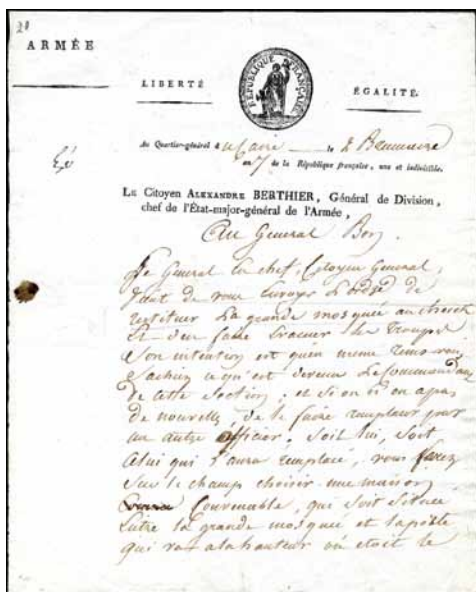 21
ARMÉE
RÉPUBLIQUE FRANÇAISE
LIBERTÉ
ÉGALITÉ.
Au Quartier-général au Caire le 2 Brumaire
an 7 de la République française, une et indivisible.
LE Citoyen ALEXANDRE BERTHIER, Général de Division,
chef de l'État-major-général de l'Armée,
Au General Bon.
Le General en chef, Citoyen General,
de vous envoyer l'ordre de
restituer la grande mosquée au cheick
et d'en faire évacuer les troupes
Son intention est qu'en meme tems vous
sachiez ce qu'est devenu le Commandant
de cette Section; et si on n'en a pas
de nouvelle, de le faire remplacer par
un autre officier; soit lui, soit
celui qui l'aura remplacé, vous ferez
sur le champ choisir une maison
Convenable, qui soit située
Entre la grande mosquée et la
qui va à la hauteur où etoit le